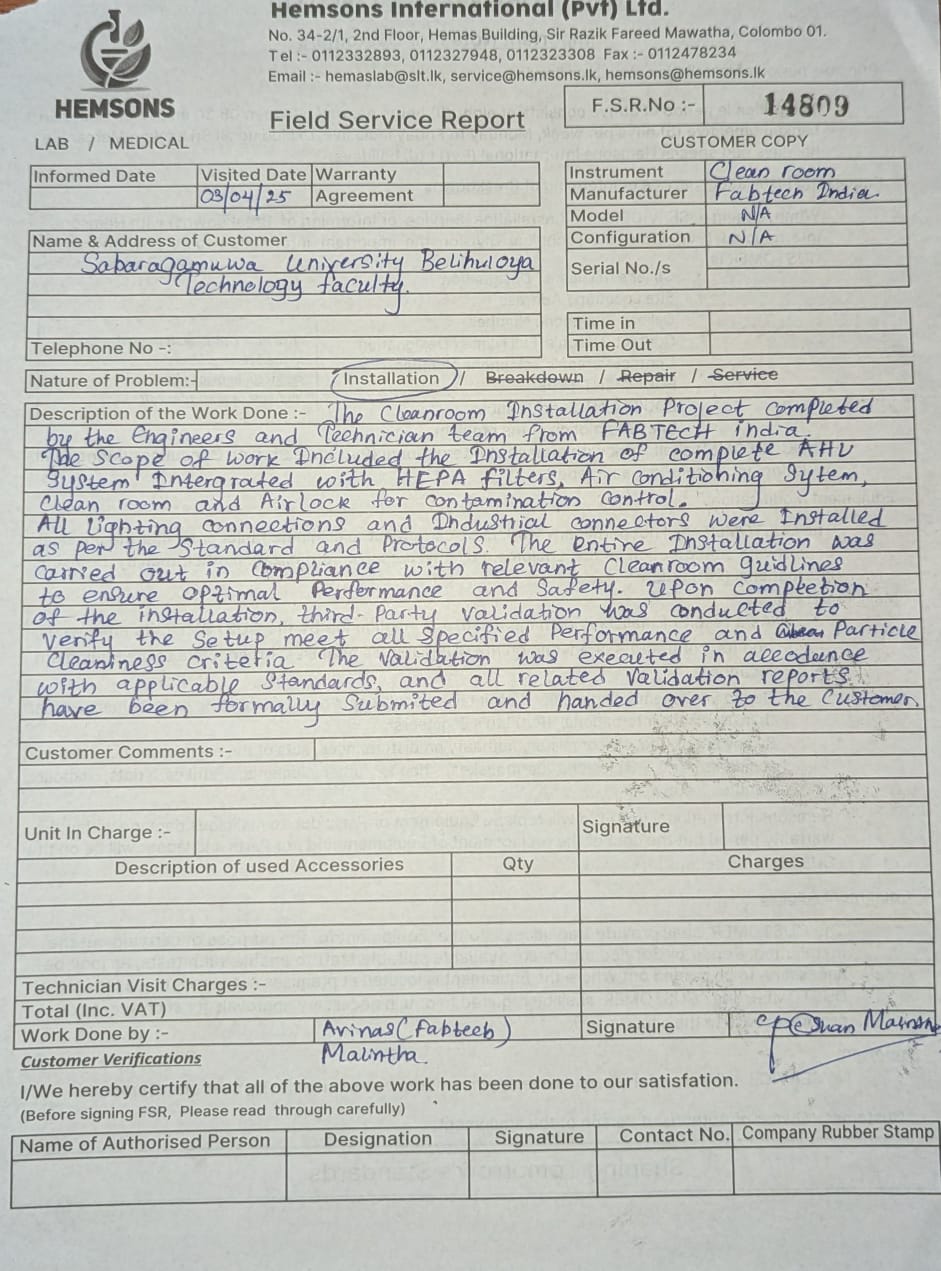 Hemsons International (Pvt) Ltd.
No. 34-2/1, 2nd Floor, Hemas Building, Sir Razik Fareed Mawatha, Colombo 01.
Tel :- 0112332893, 0112327948, 0112323308 Fax :- 0112478234
Email :- hemaslab@slt.lk, service@hemsons.lk, hemsons@hemsons.lk
HEMSONS
LAB / MEDICAL
Field Service Report
F.S.R.No :- 14809
CUSTOMER COPY
Informed Date
Visited Date
03/04/25
Warranty
Agreement
Instrument Clean room
Manufacturer Fabtech India.
Model N/A
Configuration N/A
Serial No./s
Name & Address of Customer
Sabaragamuwa University Belihuloya
Technology faculty.
Telephone No -:
Time in
Time Out
Nature of Problem:- Installation / Breakdown / Repair / Service
Description of the Work Done :- The Cleanroom Installation Project completed
by the Engineers and Technician team from FABTECH india.
The Scope of work Included the Installation of complete AHU
System Intergrated with HEPA filters, Air conditioning Sytem,
Clean room and Airlock for contamination control.
All Lighting connections and Industrial connectors were Installed
as per the Standard and Protocols. The entire Installation was
carried out in compliance with relevant Cleanroom guidlines
to ensure optimal Performance and Safety. Upon completion
of the installation, third-Party validation was conducted to
verify the Setup meet all Specified Performance and Particle
Cleanliness criteria The Validation was executed in accodance
with applicable Standards, and all related Validation reports
have been formally Submited and handed over to the Customer.
Customer Comments :-
Unit In Charge :-
Signature
Description of used Accessories Qty Charges
Technician Visit Charges :-
Total (Inc. VAT)
Work Done by :- Avinas (fabtech)
Malintha
Signature
Customer Verifications
I/We hereby certify that all of the above work has been done to our satisfation.
(Before signing FSR, Please read through carefully)
Name of Authorised Person Designation Signature Contact No. Company Rubber Stamp